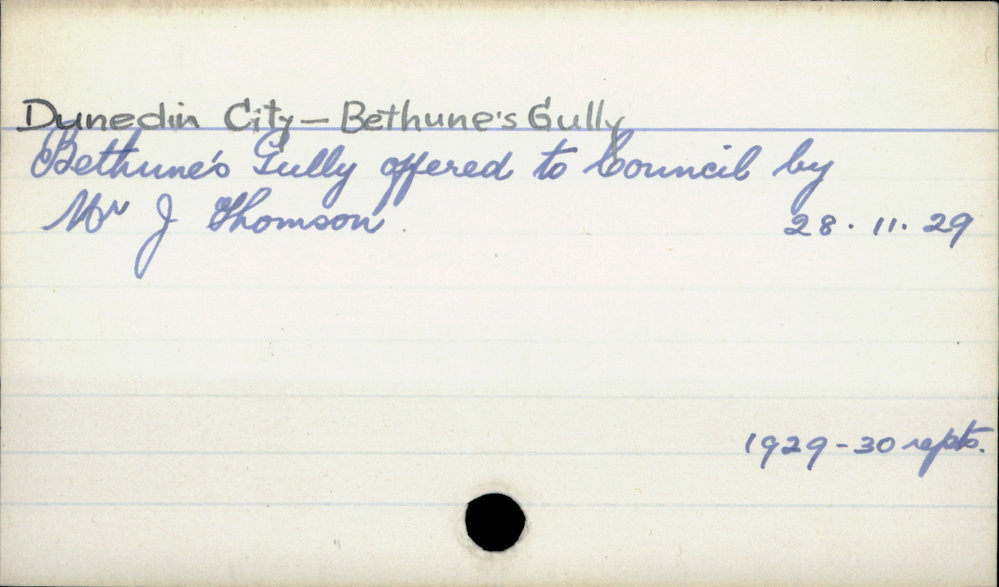 Dunedin City - Bethune's Gully
Bethune's Gully offered to Council by
Mr J Thomson
28.11.29
1929-30 repts.